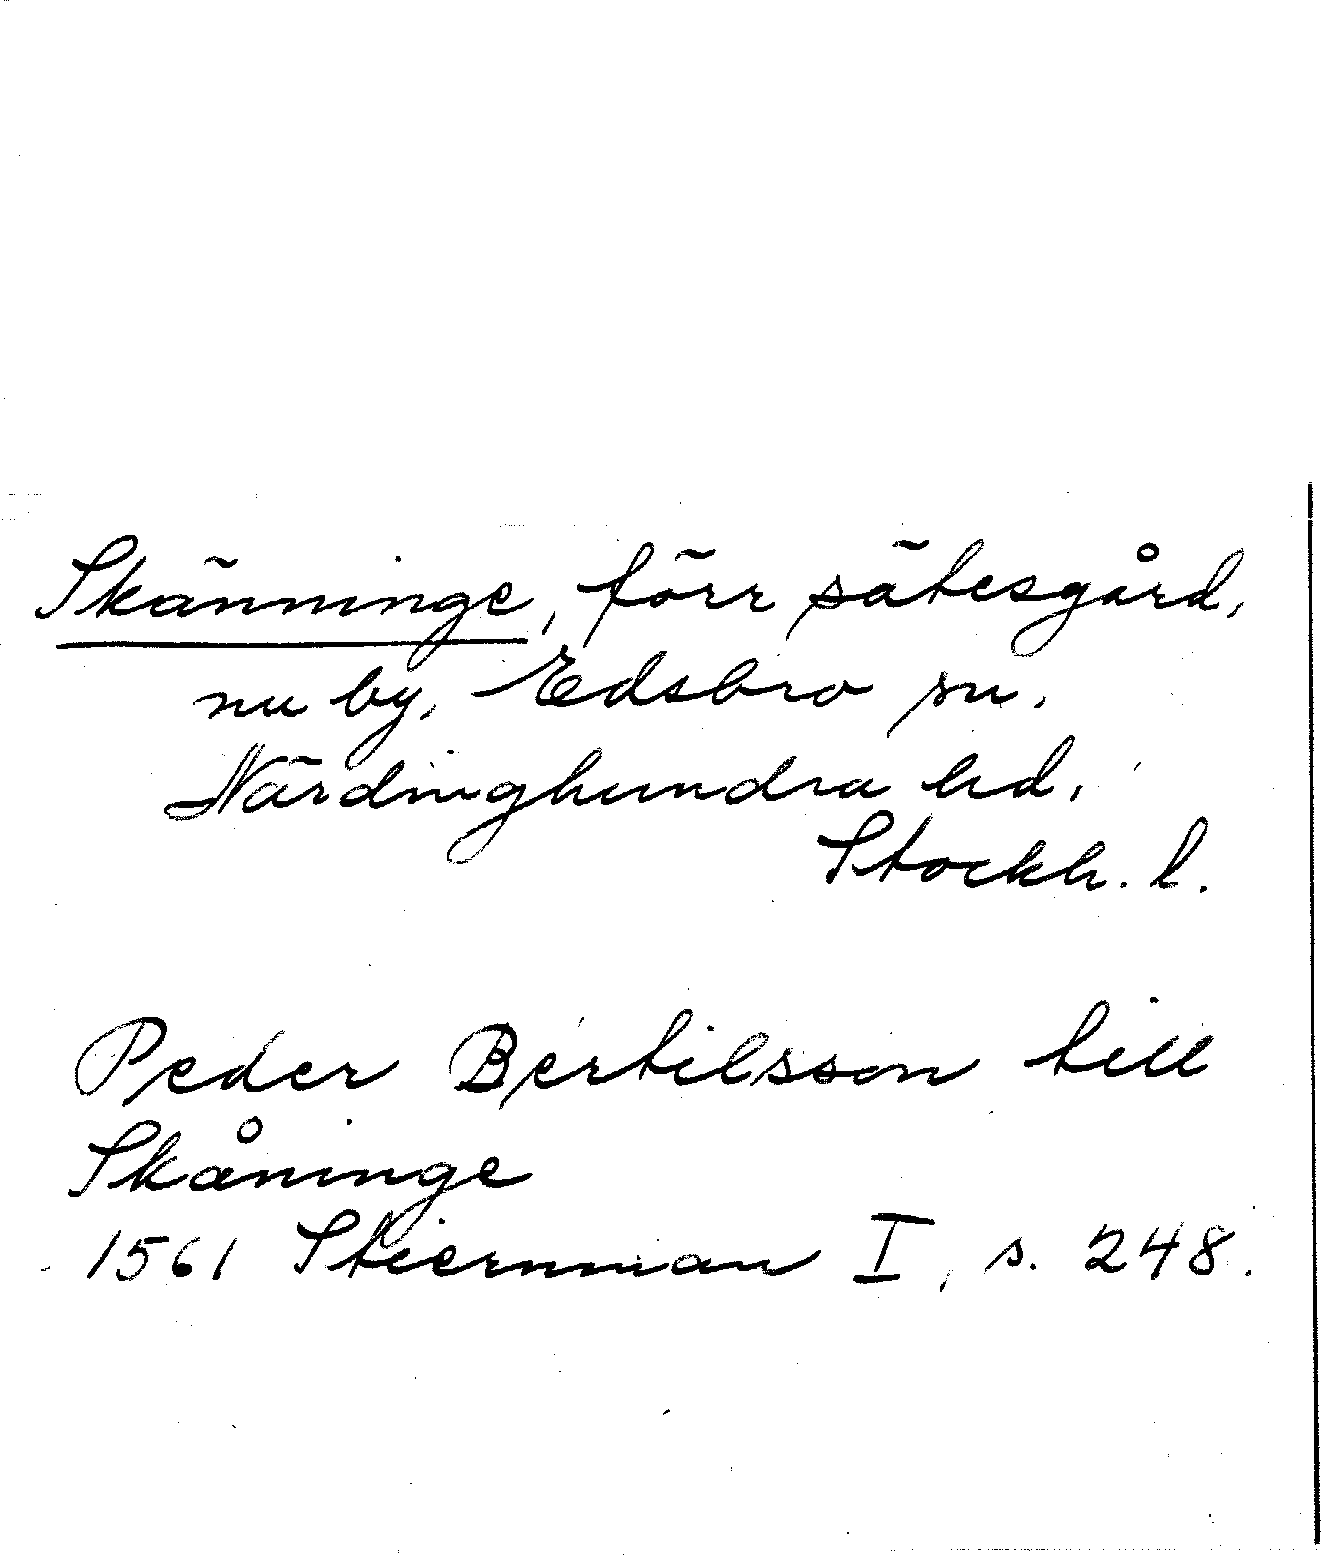 Skänninge, förr sätesgård,
nu by, Edsbro sn.
Närdinghundra hd,
Stockh. l.
Peder Bertilsson till
Skåninge
1561 Stiernman I, s. 248.